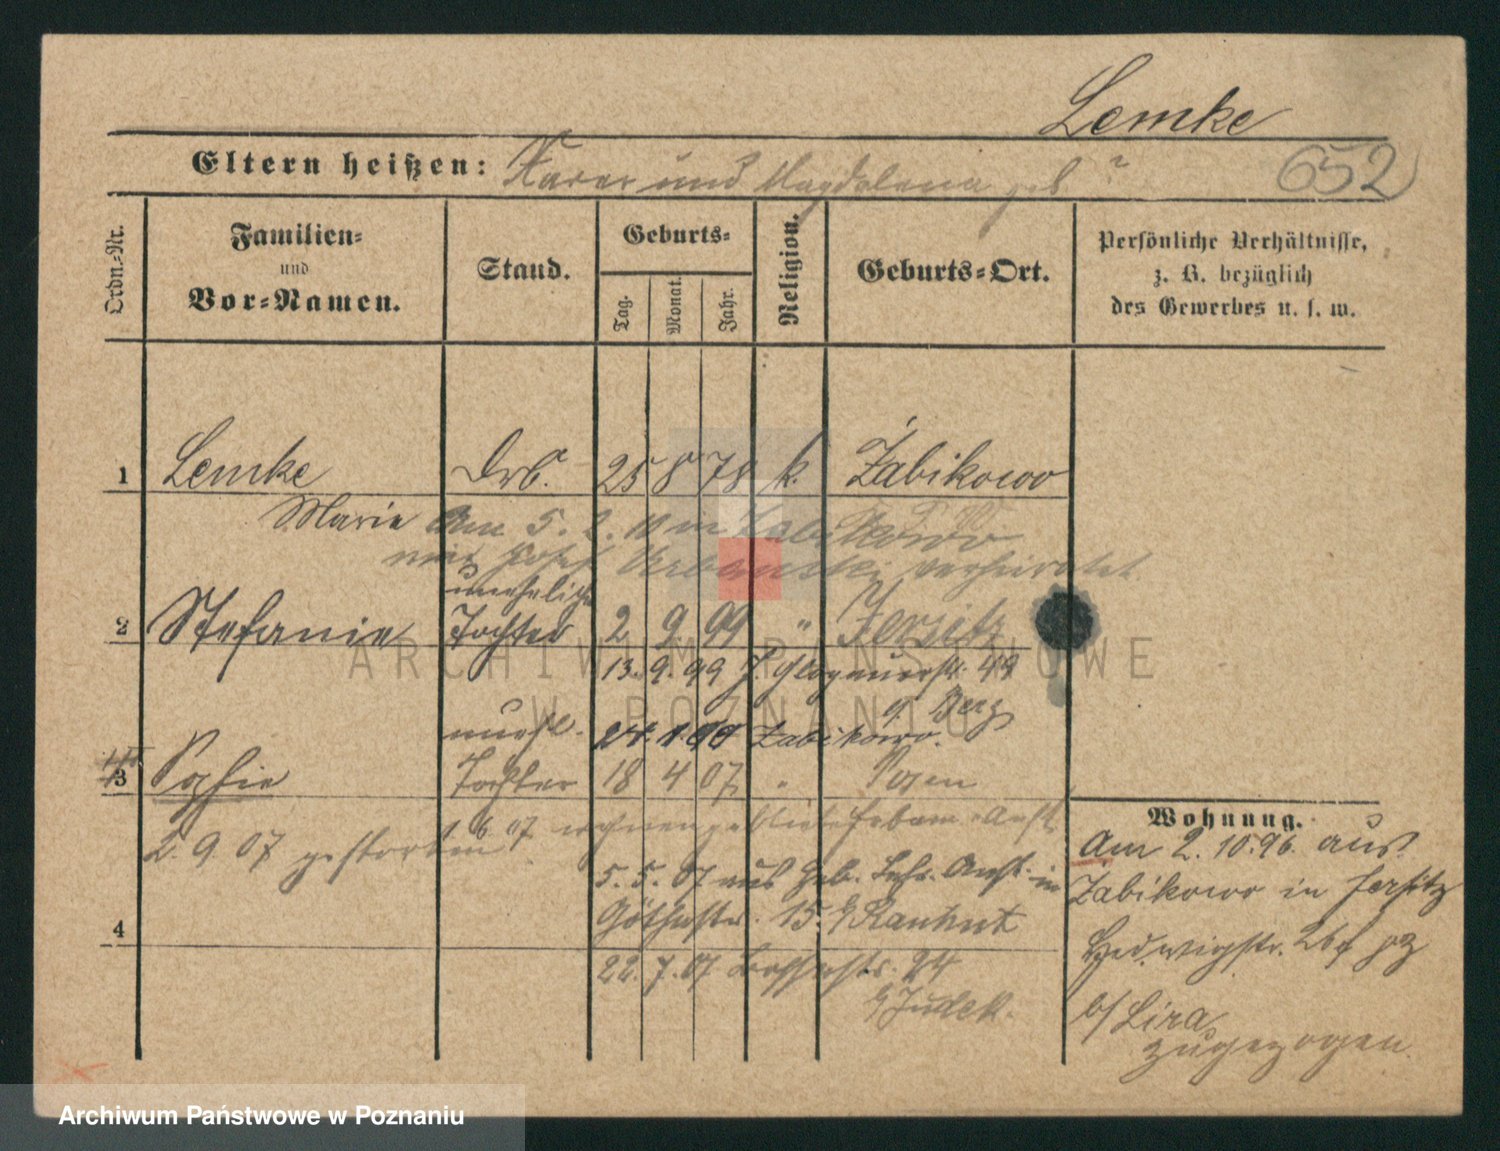 Lemke
Eltern heißen: Xaver und Magdalena geb ?
652
Ordn.-Nr.
Familien-
und
Vor-Namen.
Stand.
Geburts-
Tag.
Monat.
Jahr.
Religion.
Geburts-Ort.
Persönliche Verhältnisse,
z. B. bezüglich
des Gewerbes u. s. w.
1 Lemke Arb. 25 8 78 k. Żabikowo
Marie Am 5. 2. 10 in Zabikowo
mit Josef Urbanski verheiratet
unehelich
2 Stefanie Tochter 2 9 99 " Jersitz
13. 9. 99 J. Glogauerstr. 49
ARCHIWUM PAŃSTWOWE
W POZNANIU
b/ Berg
unehl. 24. 1. 00 Zabikowo.
3 Sophie Tochter 18 4 07 " Posen
2. 9 07 gestorben
1. 6 07
5. 5. 07 aus Heb. Lehr. Anst. in
Göthestr. 15. b/ Rauhut
4
22. 7. 07 24
b/ Judek.
Wohnung.
Am 2. 10. 96. aus
Żabikowo in Jersitz
Hedwigstr.
b/ Lira
zugezogen.
Archiwum Państwowe w Poznaniu